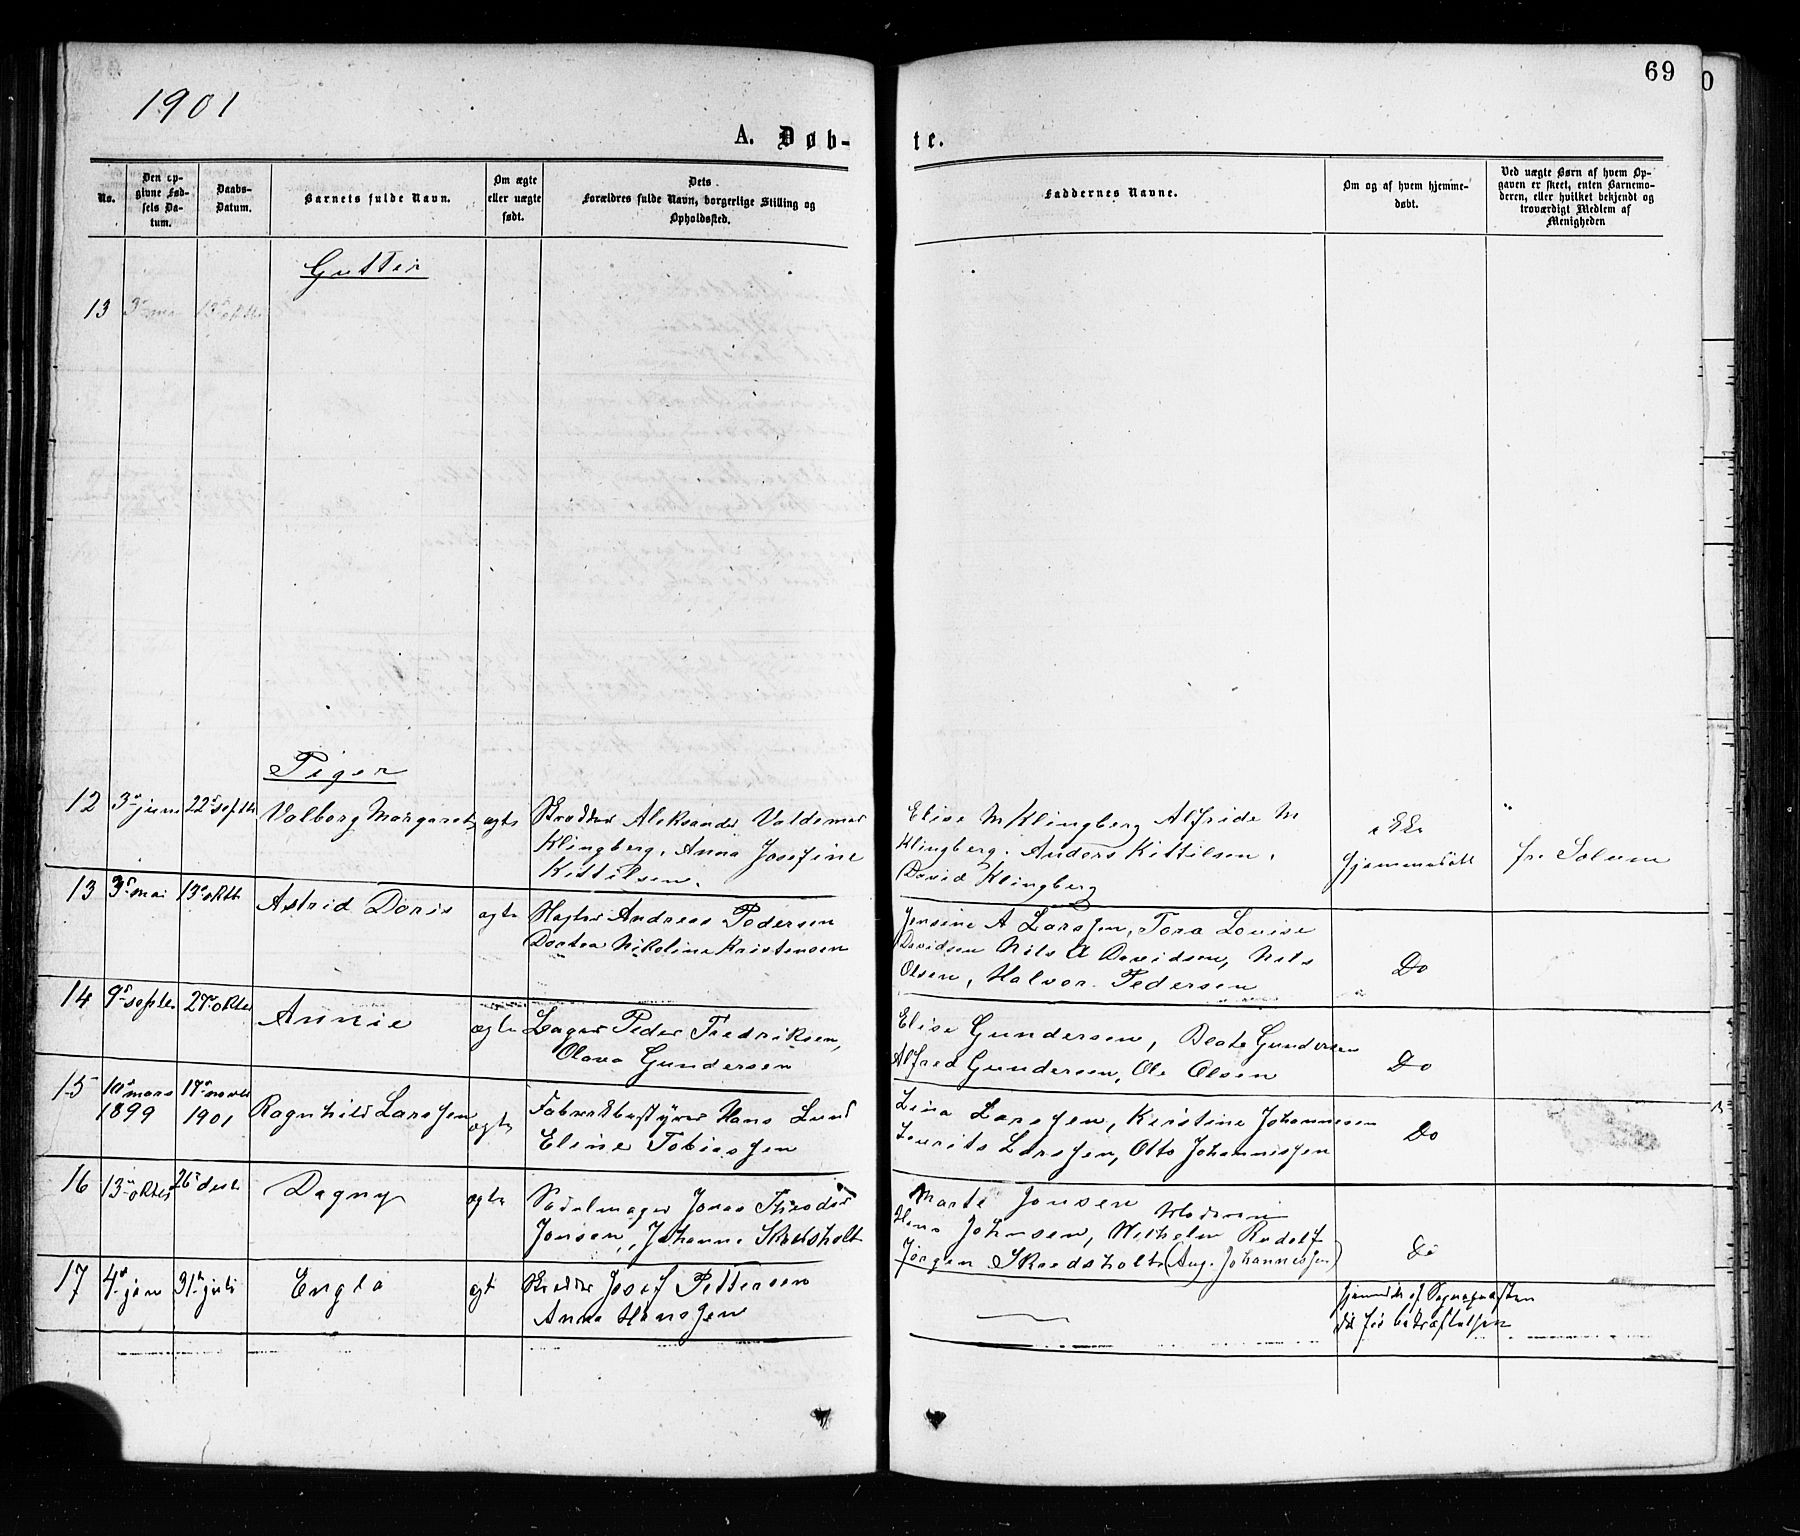 69
1901
A. Døb-
te.
No.
Den op-
givne Fød-
sels Da-
tum.
Daabs-
Datum.
Barnets fulde Navn.
Om ægte
eller uægte
født.
Dets
Forældres fulde Navn, borgerlige Stilling og
Opholdssted.
Faddernes Navne.
Om og af hvem hjemme-
døbt.
Ved uægte Børn af hvem Op-
gaven er skeet, enten Barnemo-
deren, eller hvilket bekjendt og
troværdigt Medlem af
Menigheden
Gutter
13 3 mai 13 oktb
Piger
12 3 juni 22 septb Valborg Margarete ægte Skrædder Aleksander Valdemar
Klingberg, Anna Josefine
Kittilsen.
Elise M Klingberg Alfride M
Klingberg. Anders Kittilsen.
David Klingberg
ikke
hjemmedøbt
fr. Solum
13 3 mai 13 oktb Astrid Doris ægte Andreas Pedersen
Dortea Nikoline Kristensen
Jensine A Larssen, Tora Lovise
Davidsen Nils A Davidsen, Nils
Olsen, Halvor Pedersen
Do
14 9 septbr 27 oktbr Annie ægte Peder Fredriksen,
Olava Gundersen
Elise Gundersen, Beate Gundersen
Alfred Gundersen, Ole Olsen
Do
15 10 mars 17 novbr
1899 1901 Ragnhild Larssen ægte Fabrikbestyrer Hans Lund
Eline Tobiassen
Lina Larssen, Kirstine Johannesen
Lourits Larssen, Otto Johannissen
Do
16 13 oktbr 26 desb Dagny ægte Sadelmager Jonas Theodor
Jonsen, Johanne Skredsholt
Marte Jonsen Moderen
Hans Johnsen, Wilhelm Rudolf
Jørgen Skredsholt (Aug. Johannissen)
Do
17 4 jan 31 juli Engla ægt Skrædder Josef Pettersen
Anna Hanssen